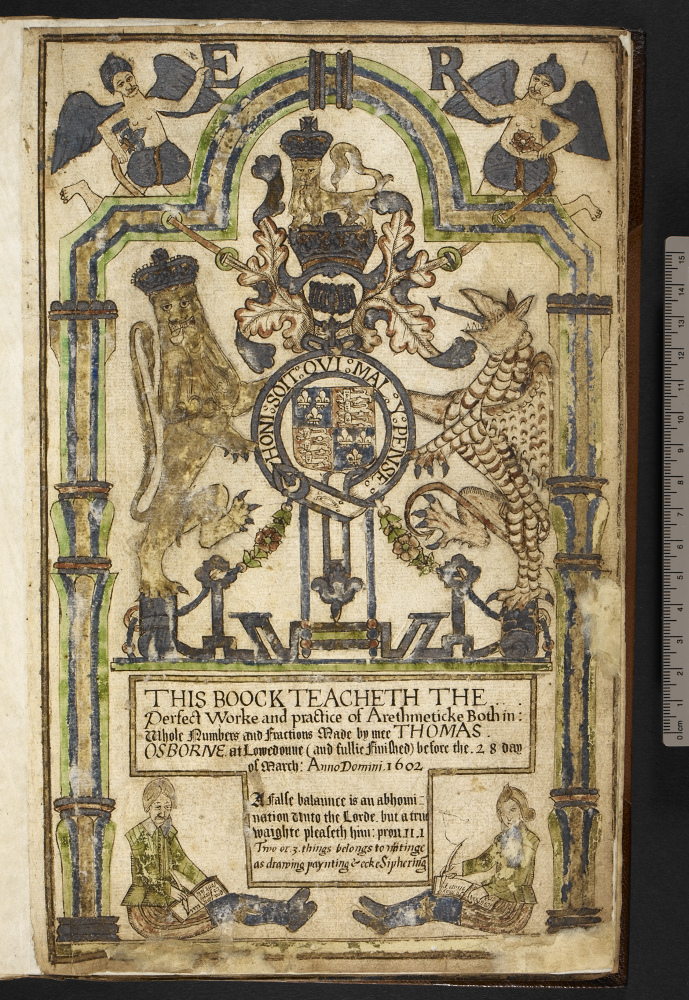 E R
HONI·SOIT·QVI·MAL·Y·PENSE
THIS BOOCK TEACHETH THE
Perfect Worke and practice of Arethmeticke Both in:
Whole Numbers and Fractions Made by mee THOMAS
OSBORNE. at Lowedoune (and fullie Finished) before the. 28 day
of March: Anno Domini. 1602
A false balaunce is an abhomi-
nation Unto the Lorde. but a tru
waighte pleaseth him: prou.11.1
Two or. 3. things belongs to writinge
as drawing paynting & ecke Siphering
0 cm 1 2 3 4 5 6 7 8 9 10 11 12 13 14 15